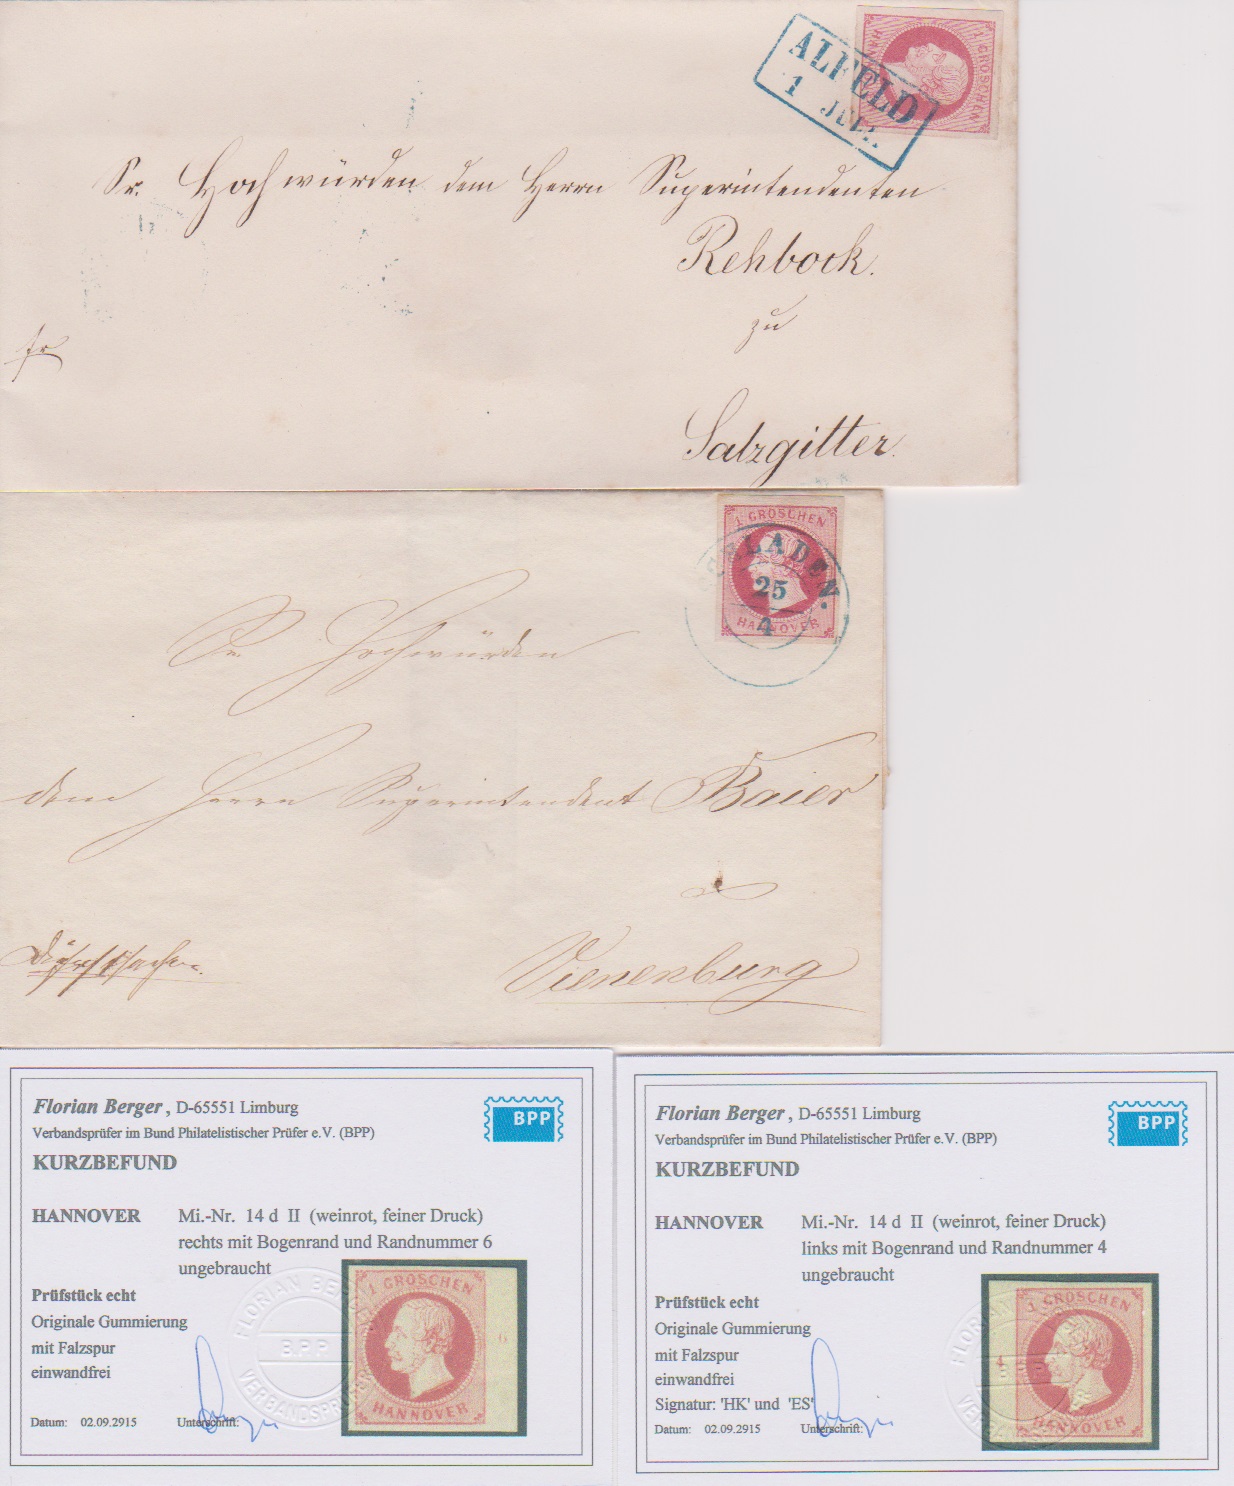 ALFELD
1 JULI.
1 GROSCHEN
HANNOVER
Sr. Hochwürden dem Herrn Superintendenten
Rehbock.
zu
fr
Salzgitter.
1 GROSCHEN
LADEN.
25
4
HANNOVER
Sr Hochwürden
dem Herrn Superintendent Baier
Vienenburg
Florian Berger, D-65551 Limburg
BPP
Verbandsprüfer im Bund Philatelistischer Prüfer e.V. (BPP)
KURZBEFUND
HANNOVER Mi.-Nr. 14 d II (weinrot, feiner Druck)
rechts mit Bogenrand und Randnummer 6
ungebraucht
Prüfstück echt
Originale Gummierung
mit Falzspur
einwandfrei
Datum: 02.09.2915 Unterschrift:
FLORIAN BERGER
B.P.P.
VERBANDSPRÜFER
1 GROSCHEN
6
HANNOVER
Florian Berger, D-65551 Limburg
BPP
Verbandsprüfer im Bund Philatelistischer Prüfer e.V. (BPP)
KURZBEFUND
HANNOVER Mi.-Nr. 14 d II (weinrot, feiner Druck)
links mit Bogenrand und Randnummer 4
ungebraucht
Prüfstück echt
Originale Gummierung
mit Falzspur
einwandfrei
Signatur: 'HK' und 'ES'
Datum: 02.09.2915 Unterschrift:
1 GROSCHEN
4
HANNOVER